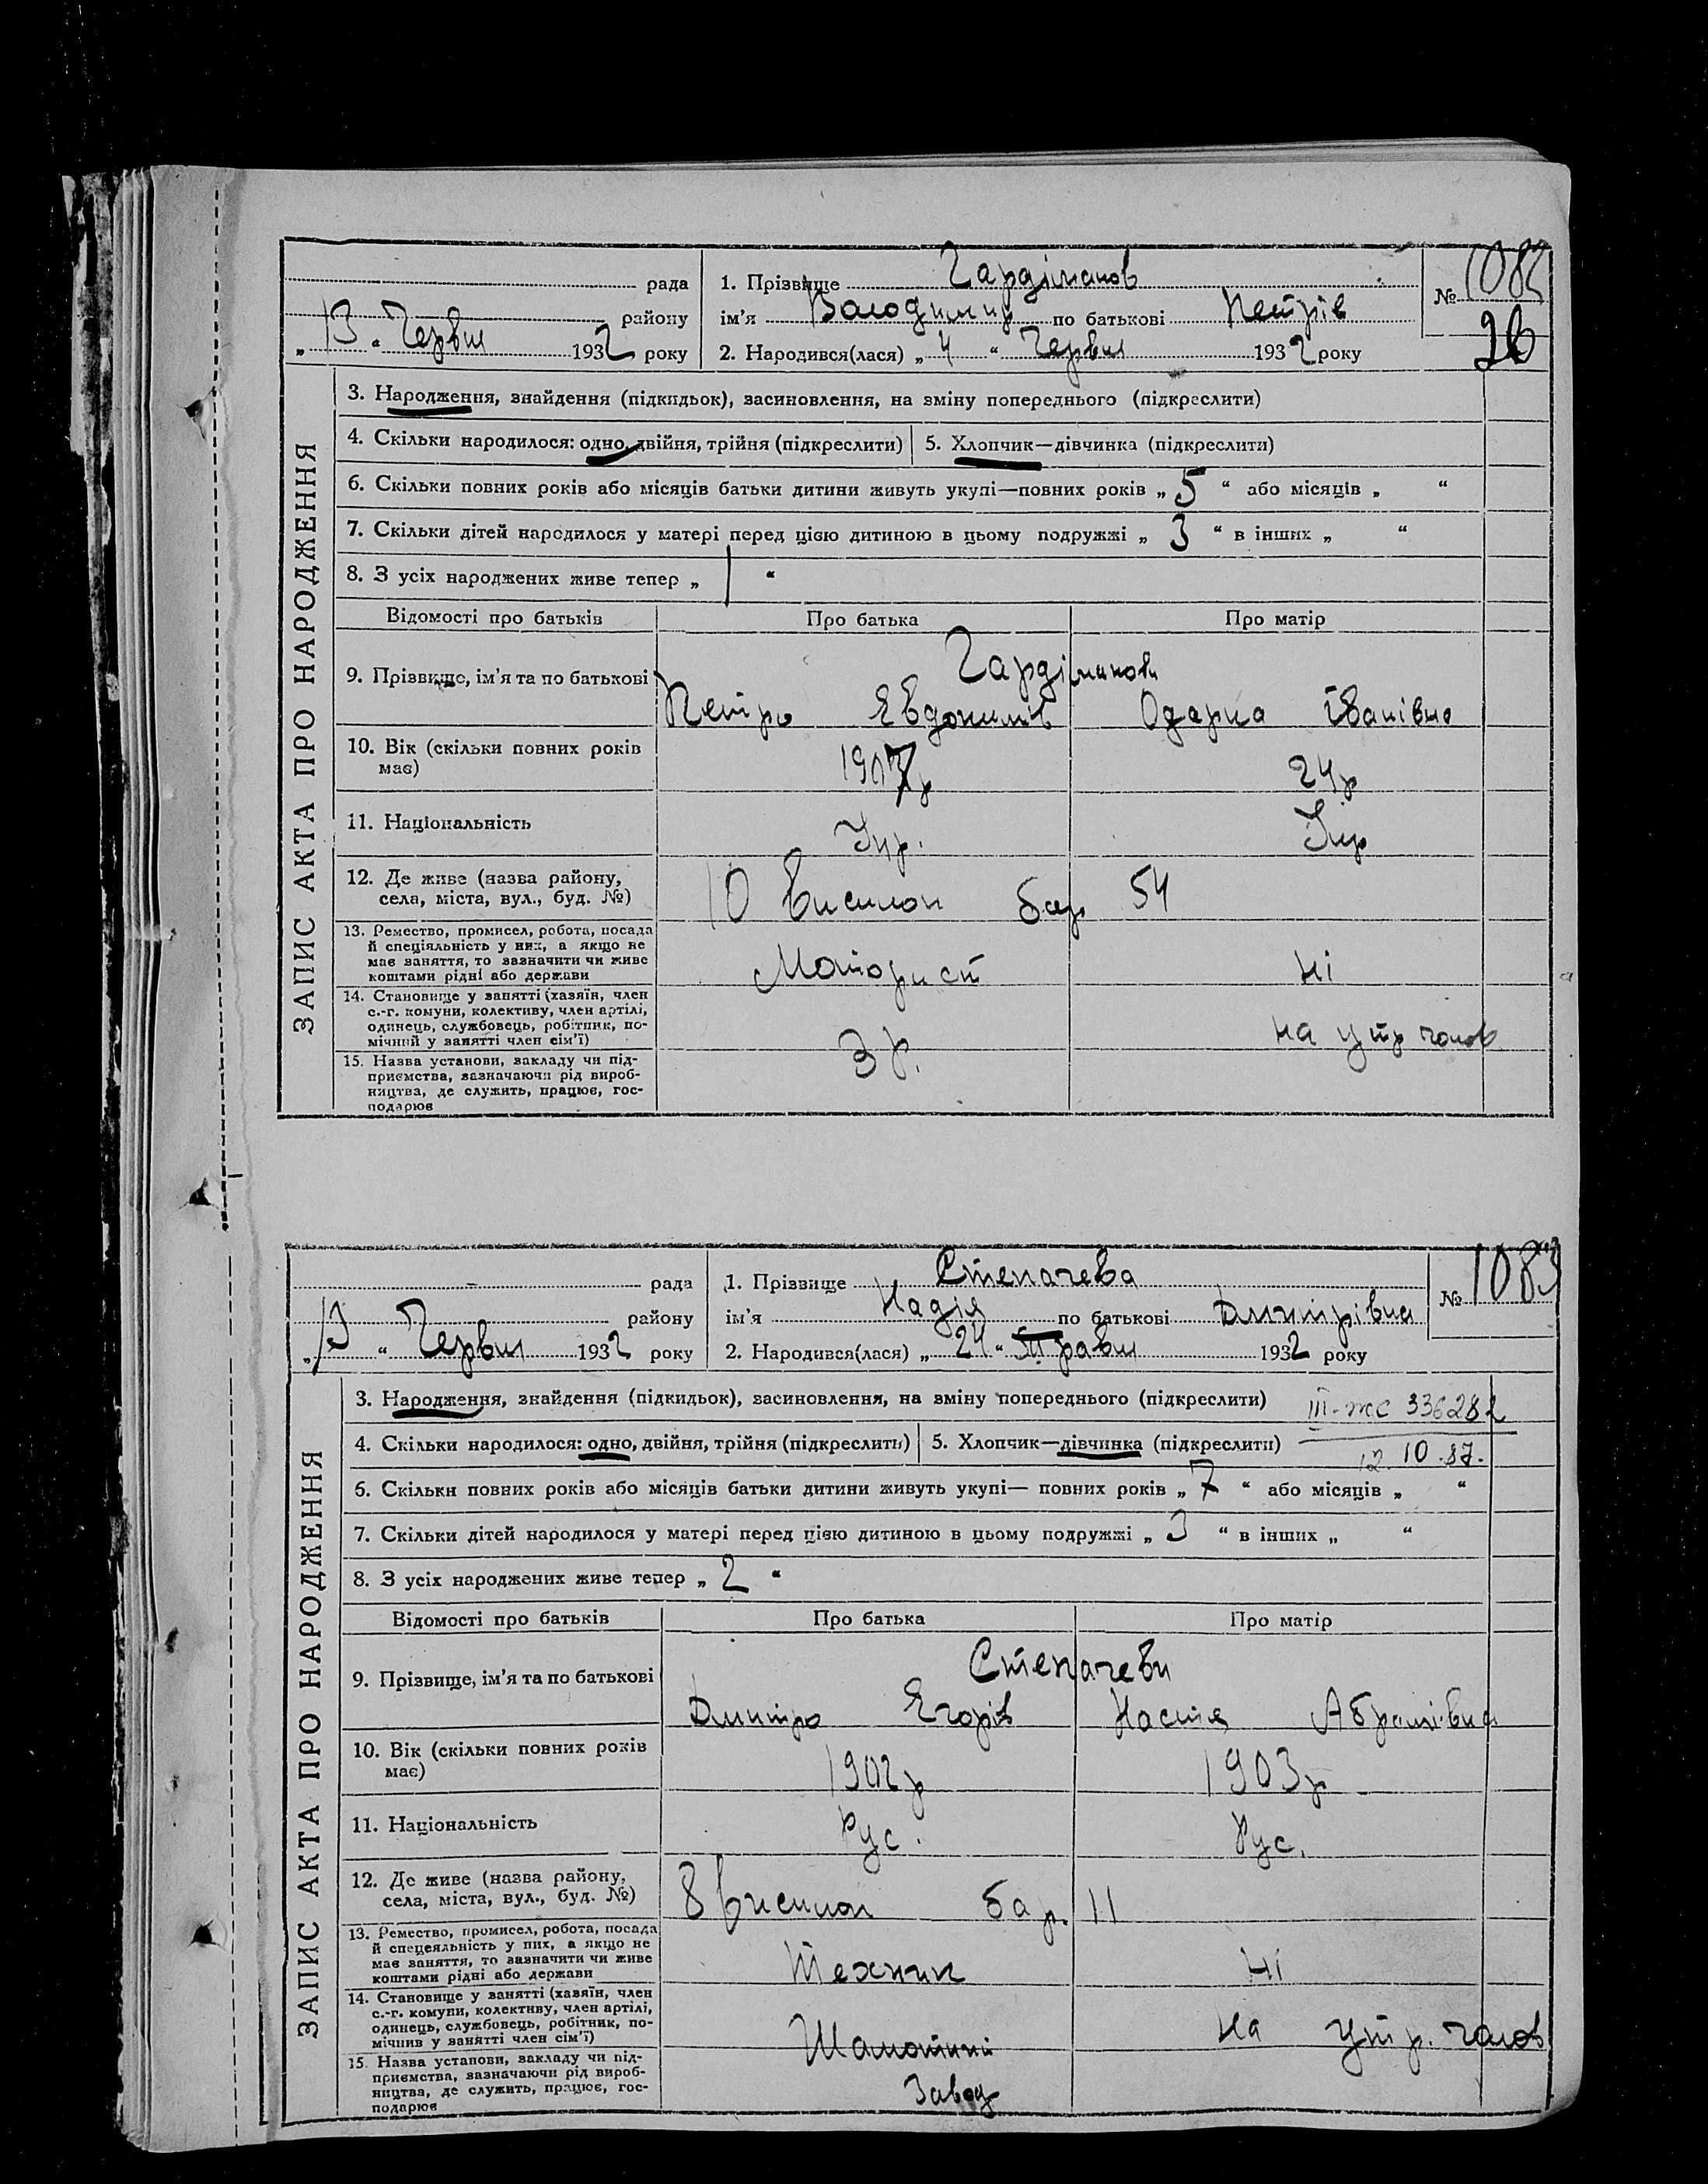 рада
району
„ 13 “ Червня 1932 року
1. Прізвище Гардіманов
ім'я Володимир по батькові Петрів
2. Народився(лася) „ 4 “ Червня 1932 року
№ 1082
26
ЗАПИС АКТА ПРО НАРОДЖЕННЯ
3. Народження, знайдення (підкидьок), засиновлення, на зміну попереднього (підкреслити)
4. Скільки народилося: одно, двійня, трійня (підкреслити) 5. Хлопчик—дівчинка (підкреслити)
6. Скільки повних років або місяців батьки дитини живуть укупі—повних років „ 5 “ або місяців „ “
7. Скільки дітей народилося у матері перед цією дитиною в цьому подружжі „ 3 “ в інших „ “
8. З усіх народжених живе тепер „ 1 “
Відомості про батьків Про батька Про матір
9. Прізвище, ім'я та по батькові
Гардіманови
Петро Евдокимів Одарка Іванівна
10. Вік (скільки повних років
має)
1907р 24р
11. Національність
Укр. Укр
12. Де живе (назва району,
села, міста, вул., буд. №)
10 Виселок бар 54
13. Ремество, промисел, робота, посада
й спеціяльність у них, а якщо не
має заняття, то зазначити чи живе
коштами рідні або держави
Моторист Ні
14. Становище у занятті (хазяїн, член
с.-г. комуни, колективу, член артілі,
одинець, службовець, робітник, по-
мічний у занятті член сім'ї)
на утр чолов
15. Назва установи, закладу чи під-
приємства, зазначаючи рід вироб-
ництва, де служить, працює, гос-
подарює
рада
району
„ 13 “ Червня 1932 року
1. Прізвище Степачева
ім'я Надія по батькові Дмитрівна
2. Народився(лася) „ 24 “ Травня 1932 року
№ 1083
ЗАПИС АКТА ПРО НАРОДЖЕННЯ
3. Народження, знайдення (підкидьок), засиновлення, на зміну попереднього (підкреслити)
III-жс 336282
12.10.87.
4. Скільки народилося: одно, двійня, трійня (підкреслить) 5. Хлопчик—дівчинка (підкреслити)
6. Скільки повних років або місяців батьки дитини живуть укупі— повних років „ 7 “ або місяців „ “
7. Скільки дітей народилося у матері перед цією дитиною в цьому подружжі „ 3 “ в інших „ “
8. З усіх народжених живе тепер „ 2 “
Відомості про батьків Про батька Про матір
9. Прізвище, ім'я та по батькові
Степачеви
Дмитро Єгорів Настя Абрамівна
10. Вік (скільки повних років
має)
1902р 1903р
11. Національність
Рус. Рус.
12. Де живе (назва району,
села, міста, вул., буд. №)
8 Виселок бар. 11
13. Ремество, промисел, робота, посада
й спецеяльність у них, а якщо не
має заняття, то зазначити чи живе
коштами рідні або держави
Технік Ні
14. Становище у занятті (хазяїн, член
с.-г. комуни, колективу, член артілі,
одинець, службовець, робітник, по-
мічнив у занятті член сім'ї)
на утр. чолов
15. Назва установи, закладу чи під-
приємства, зазначаючи рід вироб-
ництва, де служить, працює, гос-
подарює
Шамотний
Завод